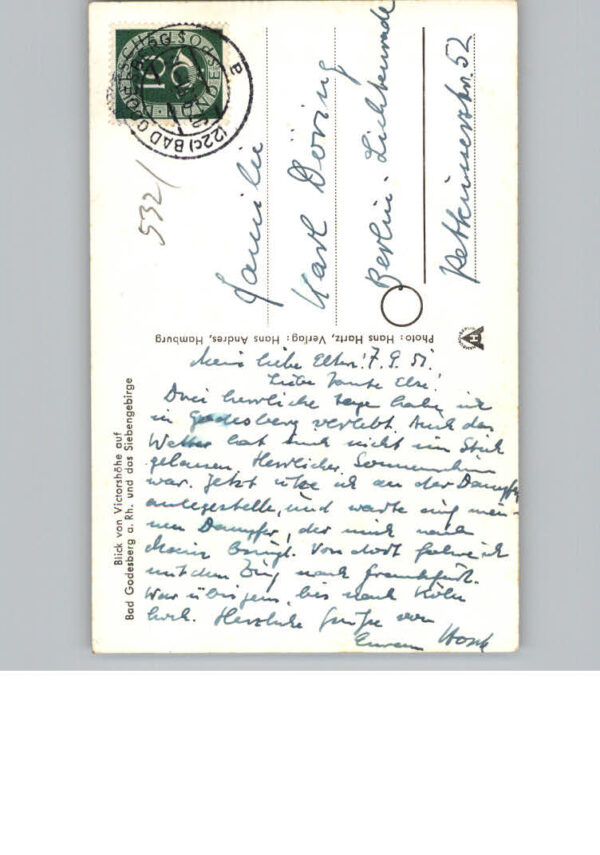 Meine liebe Eltern! 7.9.51.
Liebe Tante Else!
Drei herrliche Tage habe ich
in Godesberg verlebt. Auch das
Wetter hat mich nicht im Stich
gelassen. Herrlicher Sonnenschein
war. Jetzt sitze ich an der Dampfer
anlegestelle, und warte auf mei-
nen Dampfer, der mich nach
Mainz bringt. Von dort fahre ich
mit dem Zug nach Frankfurt.
War übrigens bis nach Köln
hoch. Herzliche Grüße von
Eurem
Familie
Karl Döring
Berlin-Lichtenrade
52
532/
(22c) BAD GODESBERG
DEUTSCHE BUNDESPOST
10
Photo: Hans Hartz, Verlag: Hans Andres, Hamburg
Blick von Victorshöhe auf
Bad Godesberg a. Rh. und das Siebengebirge